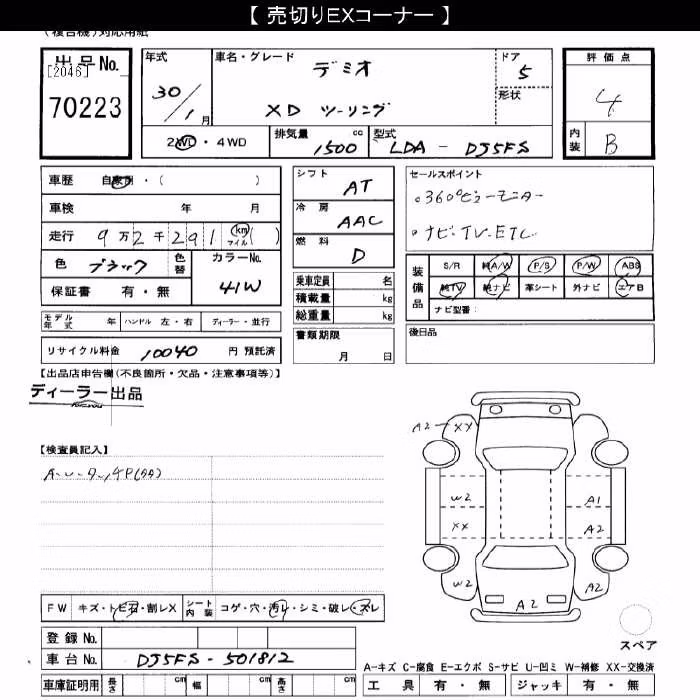 【 売切りEXコーナー 】
(複合機)対応用紙
出品No.
[2046]
70223
年式
30/1月
車名・グレード
デミオ
XD ツーリング
ドア
5
形状
評価点
4
内装
B
2WD・4WD
排気量
1500 cc
型式
LDA - DJ5FS
車歴 自家用・( )
車検 年 月
走行 9万2千291 (km マイル)( )
色 ブラック
色替
カラーNo.
41W
保証書 有・無
シフト
AT
冷房
AAC
燃料
D
乗車定員 名
積載量 kg
総重量 kg
セールスポイント
○360°ビューモニター
○ナビ-TV-ETC
装備品
S/R 純A/W P/S P/W ABS
純TV 純ナビ 革シート 外ナビ エアB
ナビ型番:
モデル年式 年 ハンドル 左・右 ディーラー・並行
書類期限
月 日
後日品
リサイクル料金 10040 円 預託済
【出品店申告欄(不良箇所・欠品・注意事項等)】
ディーラー出品
for you
【検査員記入】
FW キズ・トビ石・割レX
シート内装 コゲ・穴・汚レ・シミ・破レ・スレ
登録No.
車台No. DJ5FS - 501812
車庫証明用 長さ cm 幅 cm 高さ cm
A2 XX
W2
A1
XX
A2
W2
A2
A2
スペア
A-キズ C-腐食 E-エクボ S-サビ U-凹ミ W-補修 XX-交換済
工具 有・無 ジャッキ 有・無